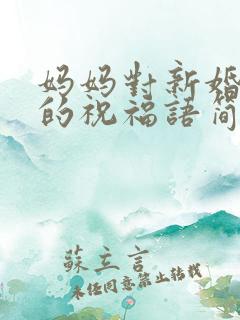 妈妈對新婚
的祝福語简
蘇立言
未经同意禁止转载